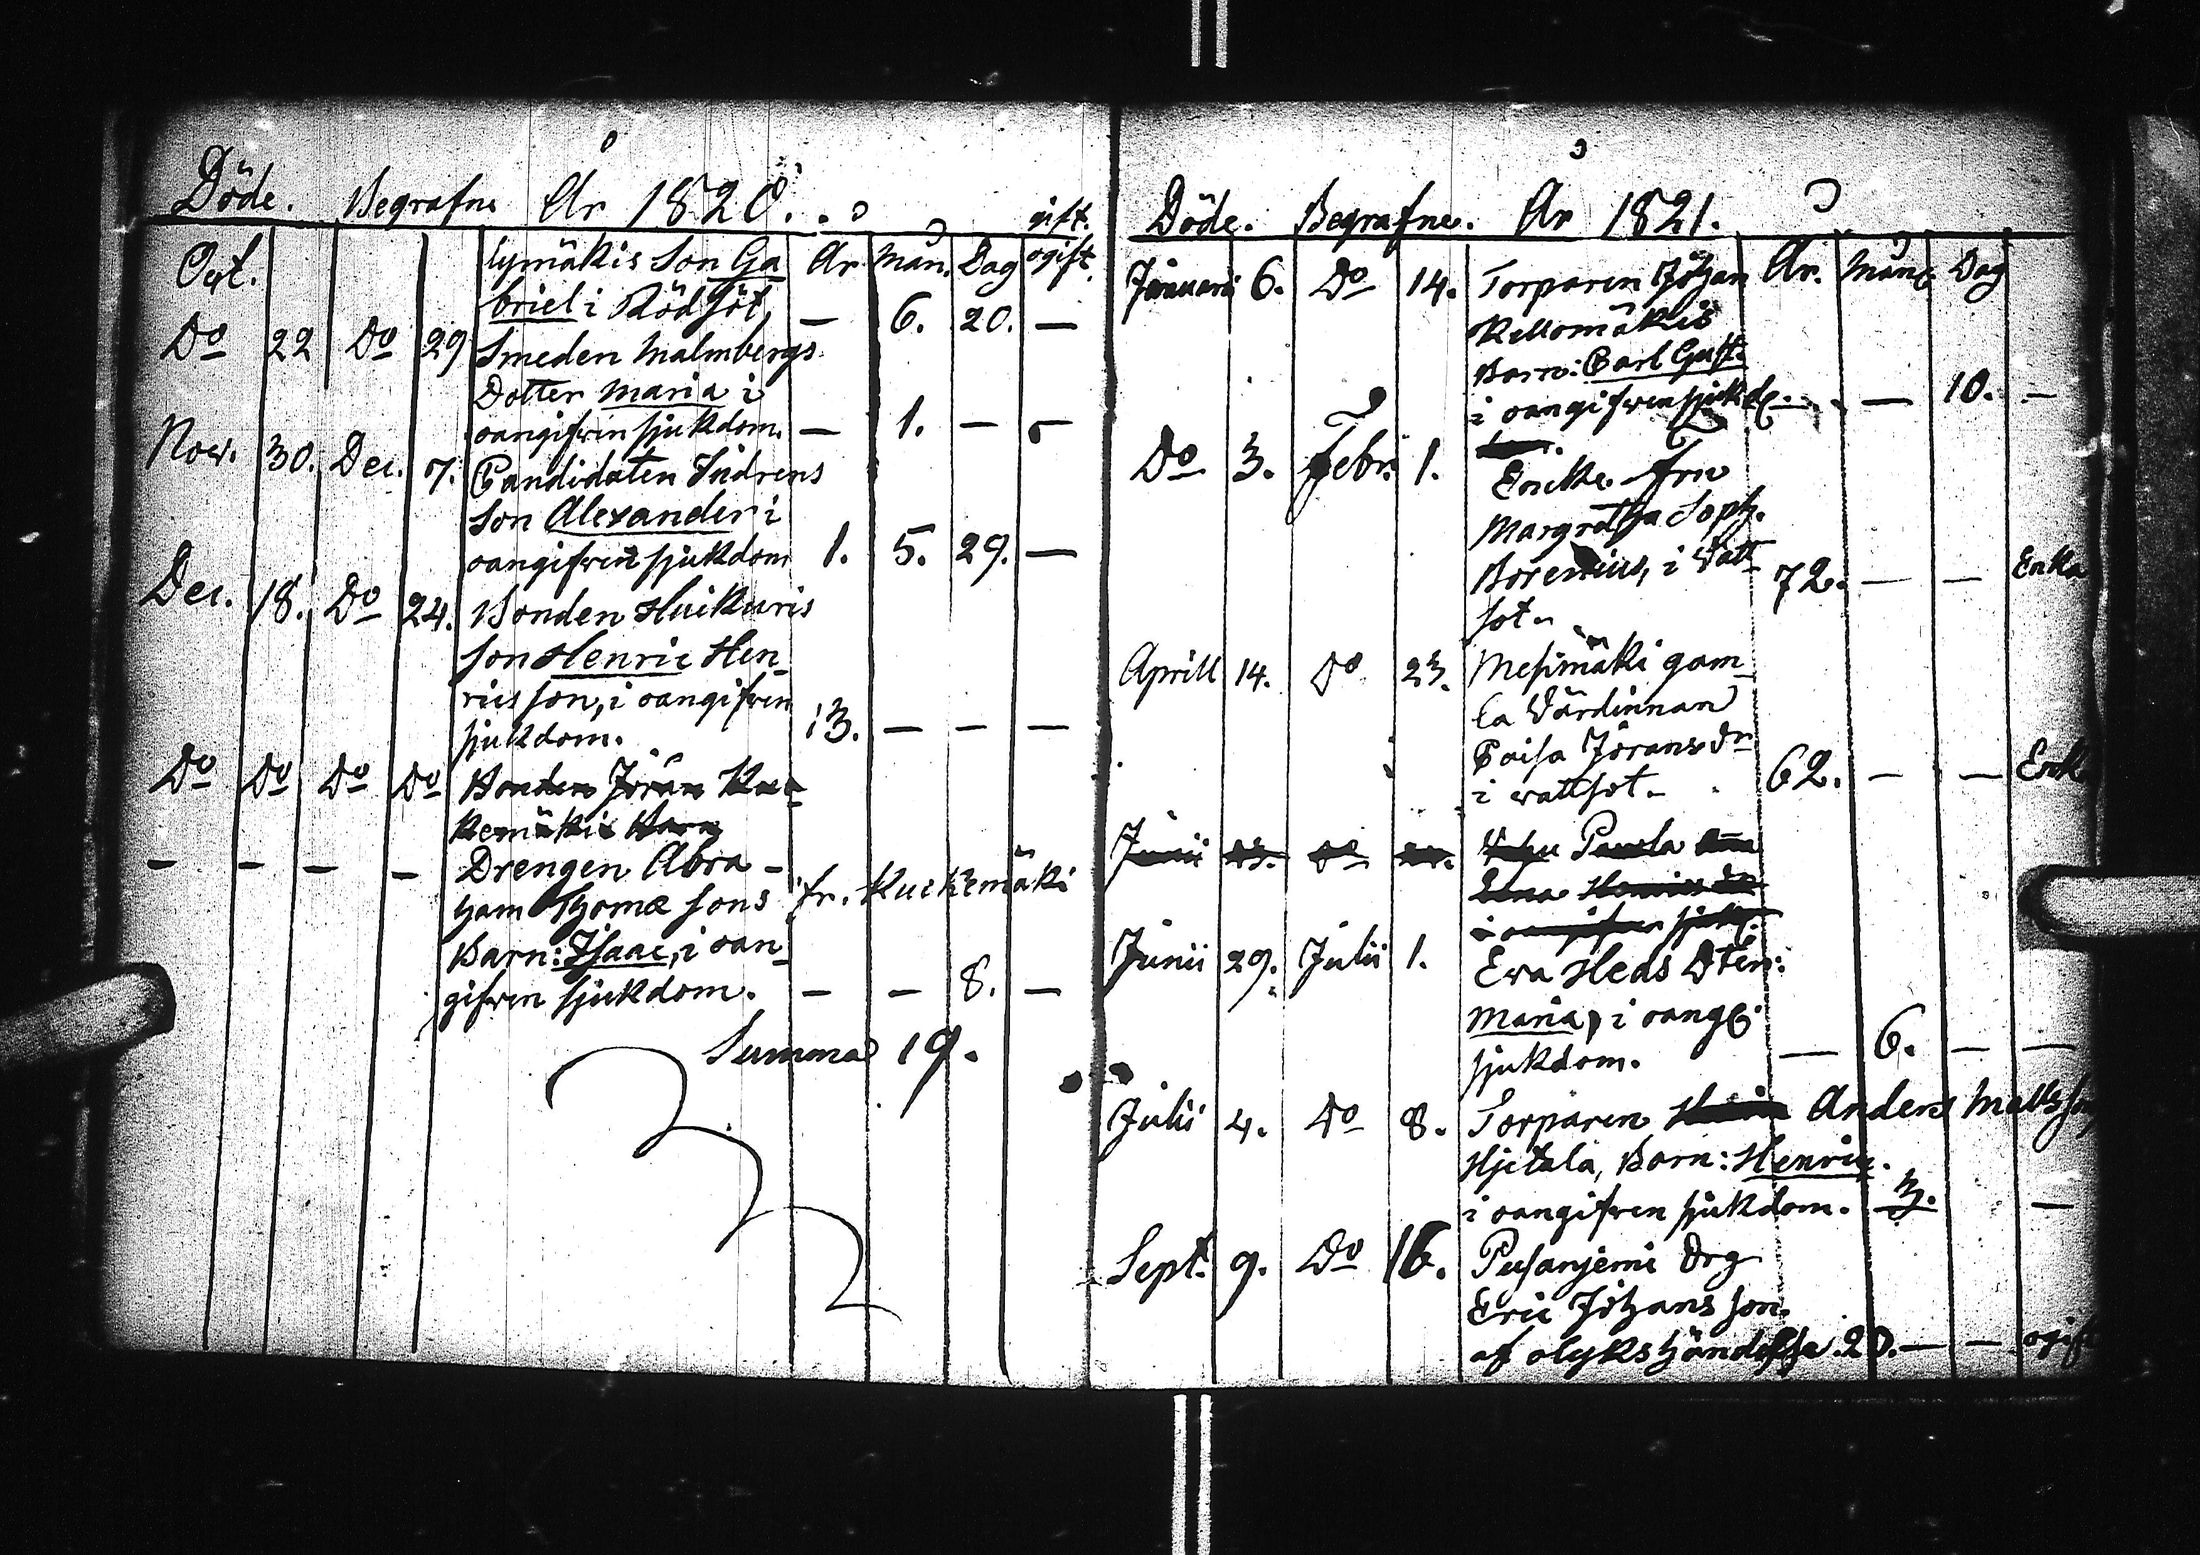 Döde. Begrafne År 1820.
gift.
Oct. lymäkis Son Ga År Mån. Dag ogift.
briel i Rödsot, — 6. 20. —
Do 22 Do 29 Smeden Malmbergs
Dotter Maria i
oangifven sjukdom. — 1. — —
Nov. 30. Dec. 7. Candidaten Indrens
Son Alexander i
oangifven sjukdom 1. 5. 29. —
Dec. 18. Do 24. Bonden Huikuris
Son Henric Hen
ricsson, i oangifven
sjukdom. 13. — — —
Do Do Do Do Bonden Jöran Kuc
kemäkis Barn
— — — — Drengen Abra-
ham Thomæ sons fr. Kuckemäki
Barn: Isaac, i oan
gifven sjukdom. — — 8. —
Summa 19.
Döde. Begrafne. År 1821.
Januarii 6. Do 14. Torparen Johan År. Mån Dag
Kellomäkis
Barn: Carl Gust.
i oangifven sjukd. — — 10. —
Do 3. Febr. 1. Encke Fru
Margretha Soph.
Borenius, i Vatt
sot. 72. — — Enka
Aprill 14. Do 23. Mesimäki gam
la Värdinnan
Caisa Jöransdr
i vattsot. 62. — — Enk
Junii Do Paula
i oangifven sjukd.
Junii 29. Julii 1. Eva Heds Dter:
Maria, i oang.
sjukdom. — 6. — —
Julii 4. Do 8. Torparen Anders Mattsson
Hjetala, Barn: Henric.
i oangifven sjukdom. 3. —
Sept. 9. Do 16. Pusanjemi Drg
Eric Johans son.
af olykshändelse. 20. — — ogift